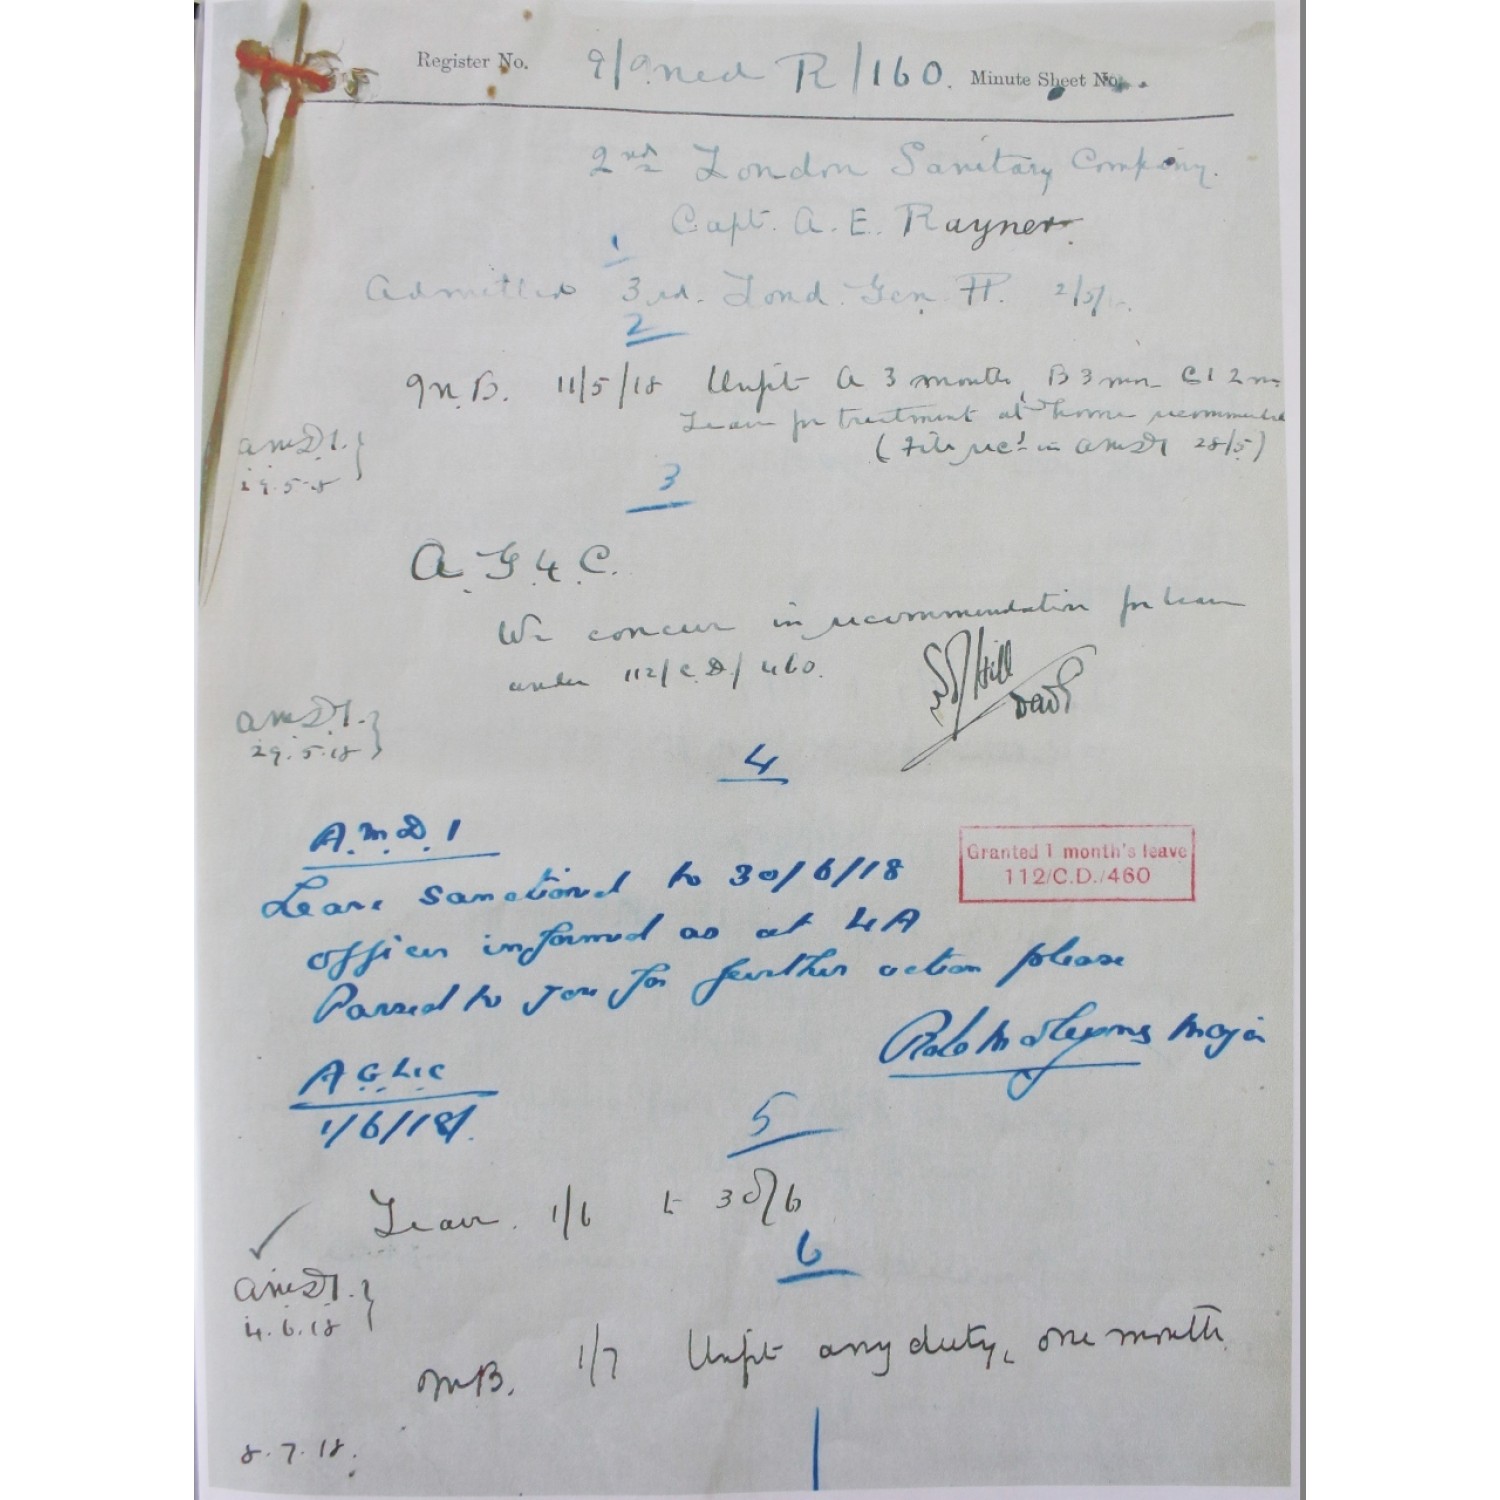 Register No. 9/Med R/160. Minute Sheet No.
2nd London Sanitary Company.
Capt. A. E. Rayner.
1
Admitted 3rd. Lond. Gen. H. 2/5/
2
M.B. 11/5/18 Unfit A 3 months, B 3 mon C1 2 m
Leave for treatment at home recommended
(File rec'd in AMD1 28/5)
AMD1.
29.5.18
3
A.G.4.C.
We concur in recommendation for leave
under 112/C.D/460.
Hill
AMD1.
29.5.18
4
A.M.D.1
Granted 1 month's leave
112/C.D./460
Leave sanctioned to 30/6/18
officer informed as at 4A
Passed to you for further action please
Major
AG4C
1/6/18
5
Leave. 1/6 to 30/6
6
AMD1.
4.6.18
M.B. 1/7 Unfit any duty, one month
8.7.18.